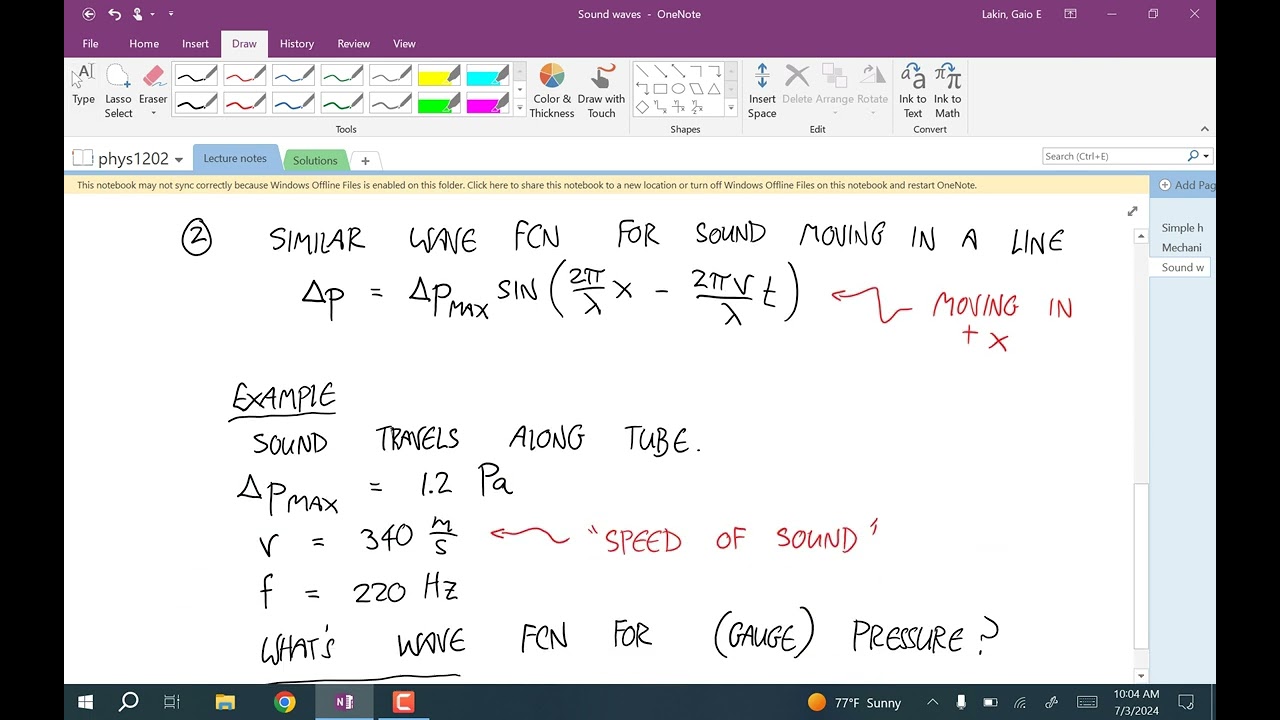 Sound waves - OneNote
Lakin, Gaio E
File Home Insert Draw History Review View
Type
Lasso Select
Eraser
Color & Thickness
Draw with Touch
Insert Space
Delete
Arrange
Rotate
Ink to Text
Ink to Math
Tools
Shapes
Edit
Convert
phys1202
Lecture notes
Solutions
+
Search (Ctrl+E)
This notebook may not sync correctly because Windows Offline Files is enabled on this folder. Click here to share this notebook to a new location or turn off Windows Offline Files on this notebook and restart OneNote.
Add Pag
Simple h
Mechani
Sound w
② SIMILAR WAVE FCN FOR SOUND MOVING IN A LINE
Δp = Δp_MAX SIN (2π/λ x - 2πv/λ t)
MOVING IN
+ x
EXAMPLE
SOUND TRAVELS ALONG TUBE.
Δp_MAX = 1.2 Pa
v = 340 m/s
"SPEED OF SOUND"
f = 220 Hz
WHAT'S WAVE FCN FOR (GAUGE) PRESSURE?
77°F Sunny
10:04 AM
7/3/2024